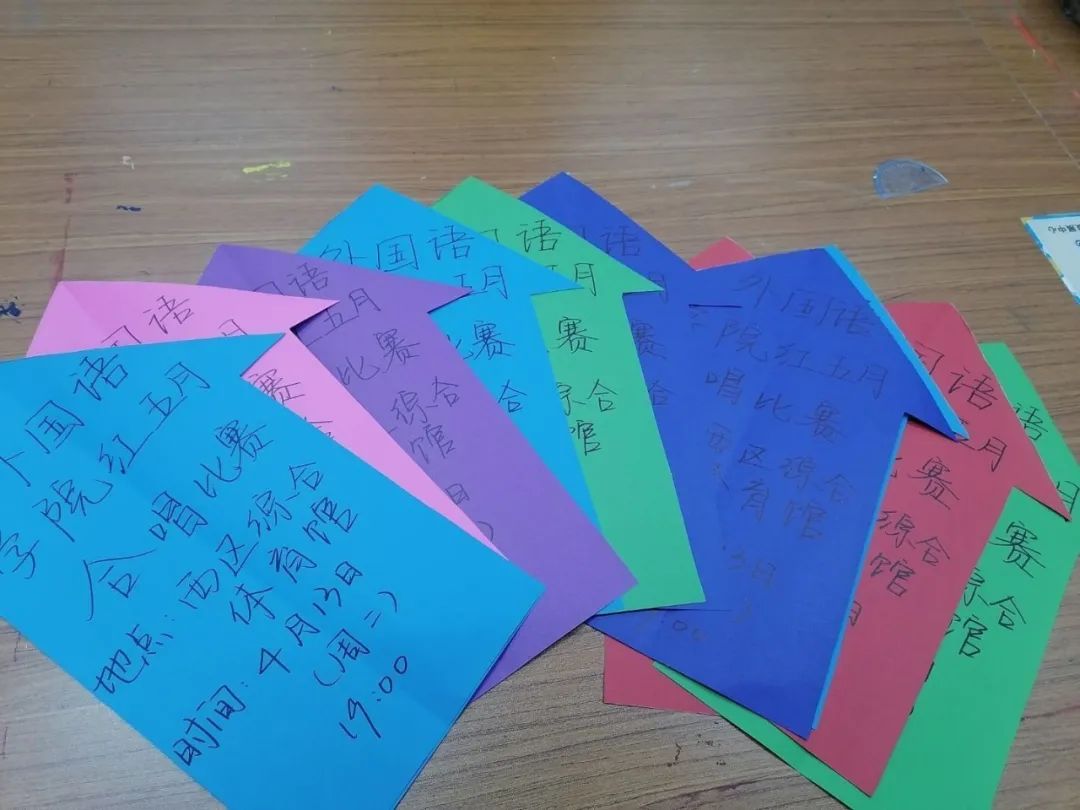 外国语
学院红五月
合唱比赛
地点:西区综合
体育馆
时间:4月13日
(周二)
19:00
国语
月
赛
国语
五月
比赛
综合
馆
日
)
外国语
五月
比赛
合
国语
月
赛
综合
馆
国语
外国语
院红五月
唱比赛
西区综合
育馆
13日
19:00
国语
月
比赛
综合
馆
月
语
月
赛
综合
馆
展中心